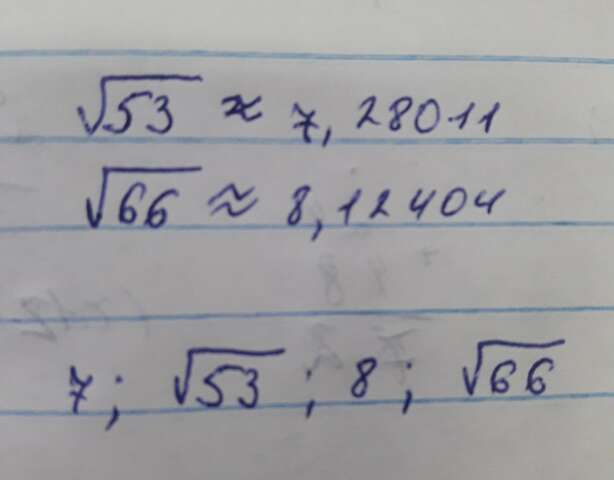 √53 ≈ 7,28011
√66 ≈ 8,12404
7; √53; 8; √66